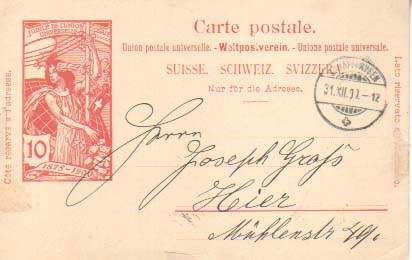 Carte postale.
Union postale universelle. - Weltpostverein. - Unione postale universale.
SUISSE. SCHWEIZ. SVIZZERA.
Nur für die Adresse.
Côté réservé à l'adresse.
Lato riservato
10
1875-1900
31.XII.07.-12
Herrn
Joseph Groß
Hier
Mühlenstr